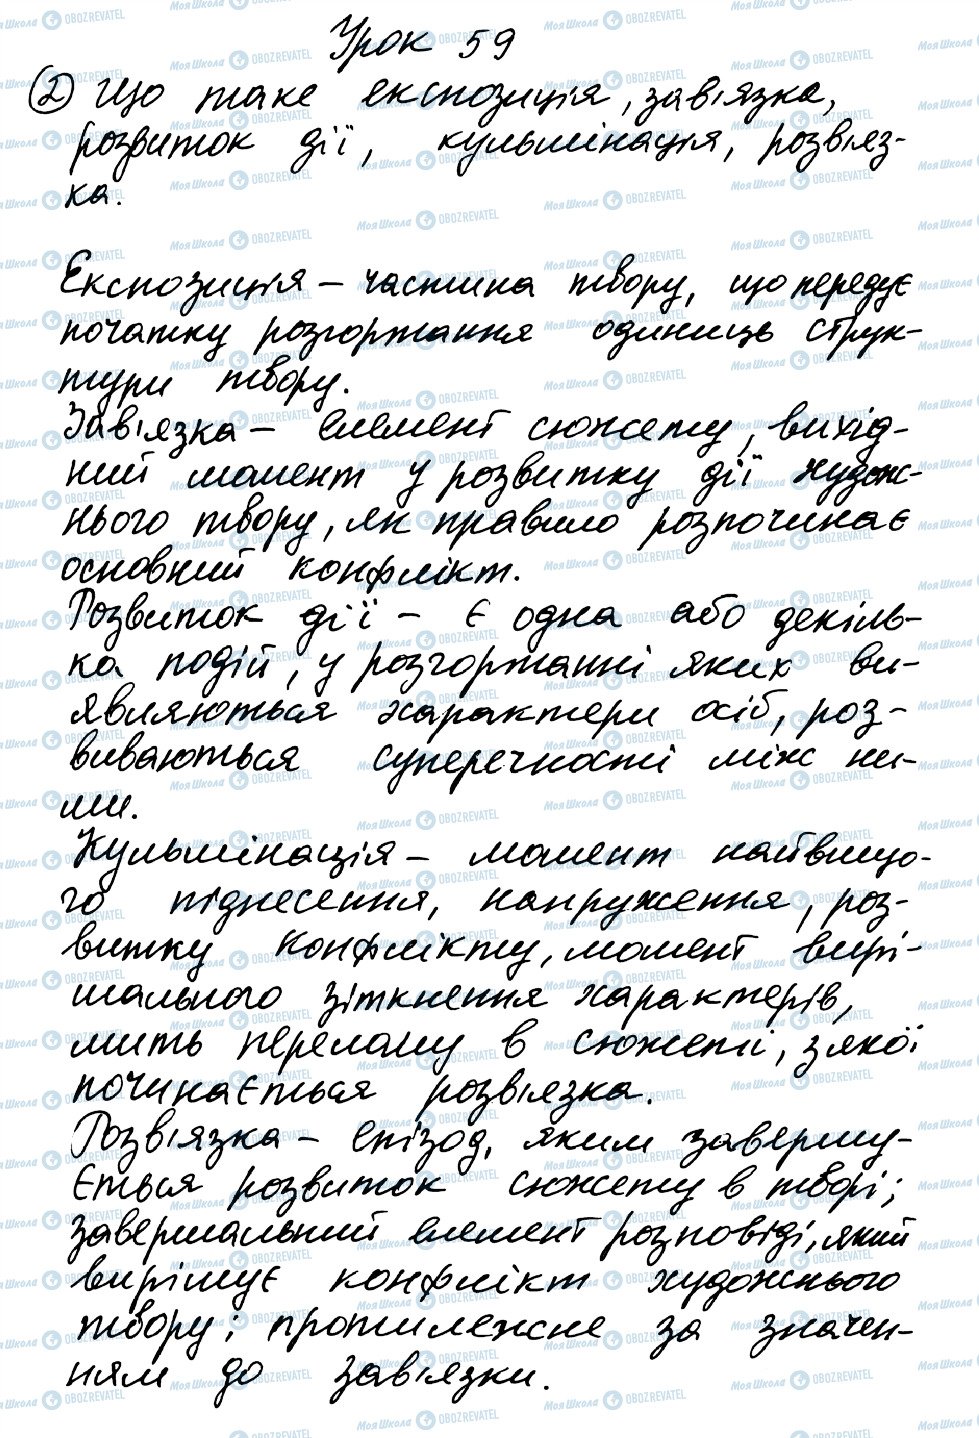 Урок 59
② Що таке експозиція, зав'язка,
розвиток дії, кульмінація, розв'яз-
ка.
Експозиція – частина твору, що передує
початку розгортання одиниць струк-
тури твору.
Зав'язка – елемент сюжету, вихід-
ний момент у розвитку дії худож-
нього твору, як правило розпочинає
основний конфлікт.
Розвиток дії – є одна або декіль-
ка подій, у розгортанні яких ви-
являються характери осіб, роз-
виваються суперечності між ни-
ми.
Кульмінація – момент найвищо-
го піднесення, напруження, роз-
витку конфлікту, момент вирі-
шального зіткнення характерів,
мить перелому в сюжеті, з якої
починається розв'язка.
Розв'язка – епізод, яким завершу-
ється розвиток сюжету в творі;
завершальний елемент розповіді, який
вирішує конфлікт художнього
твору; протилежне за значен-
ням до зав'язки.